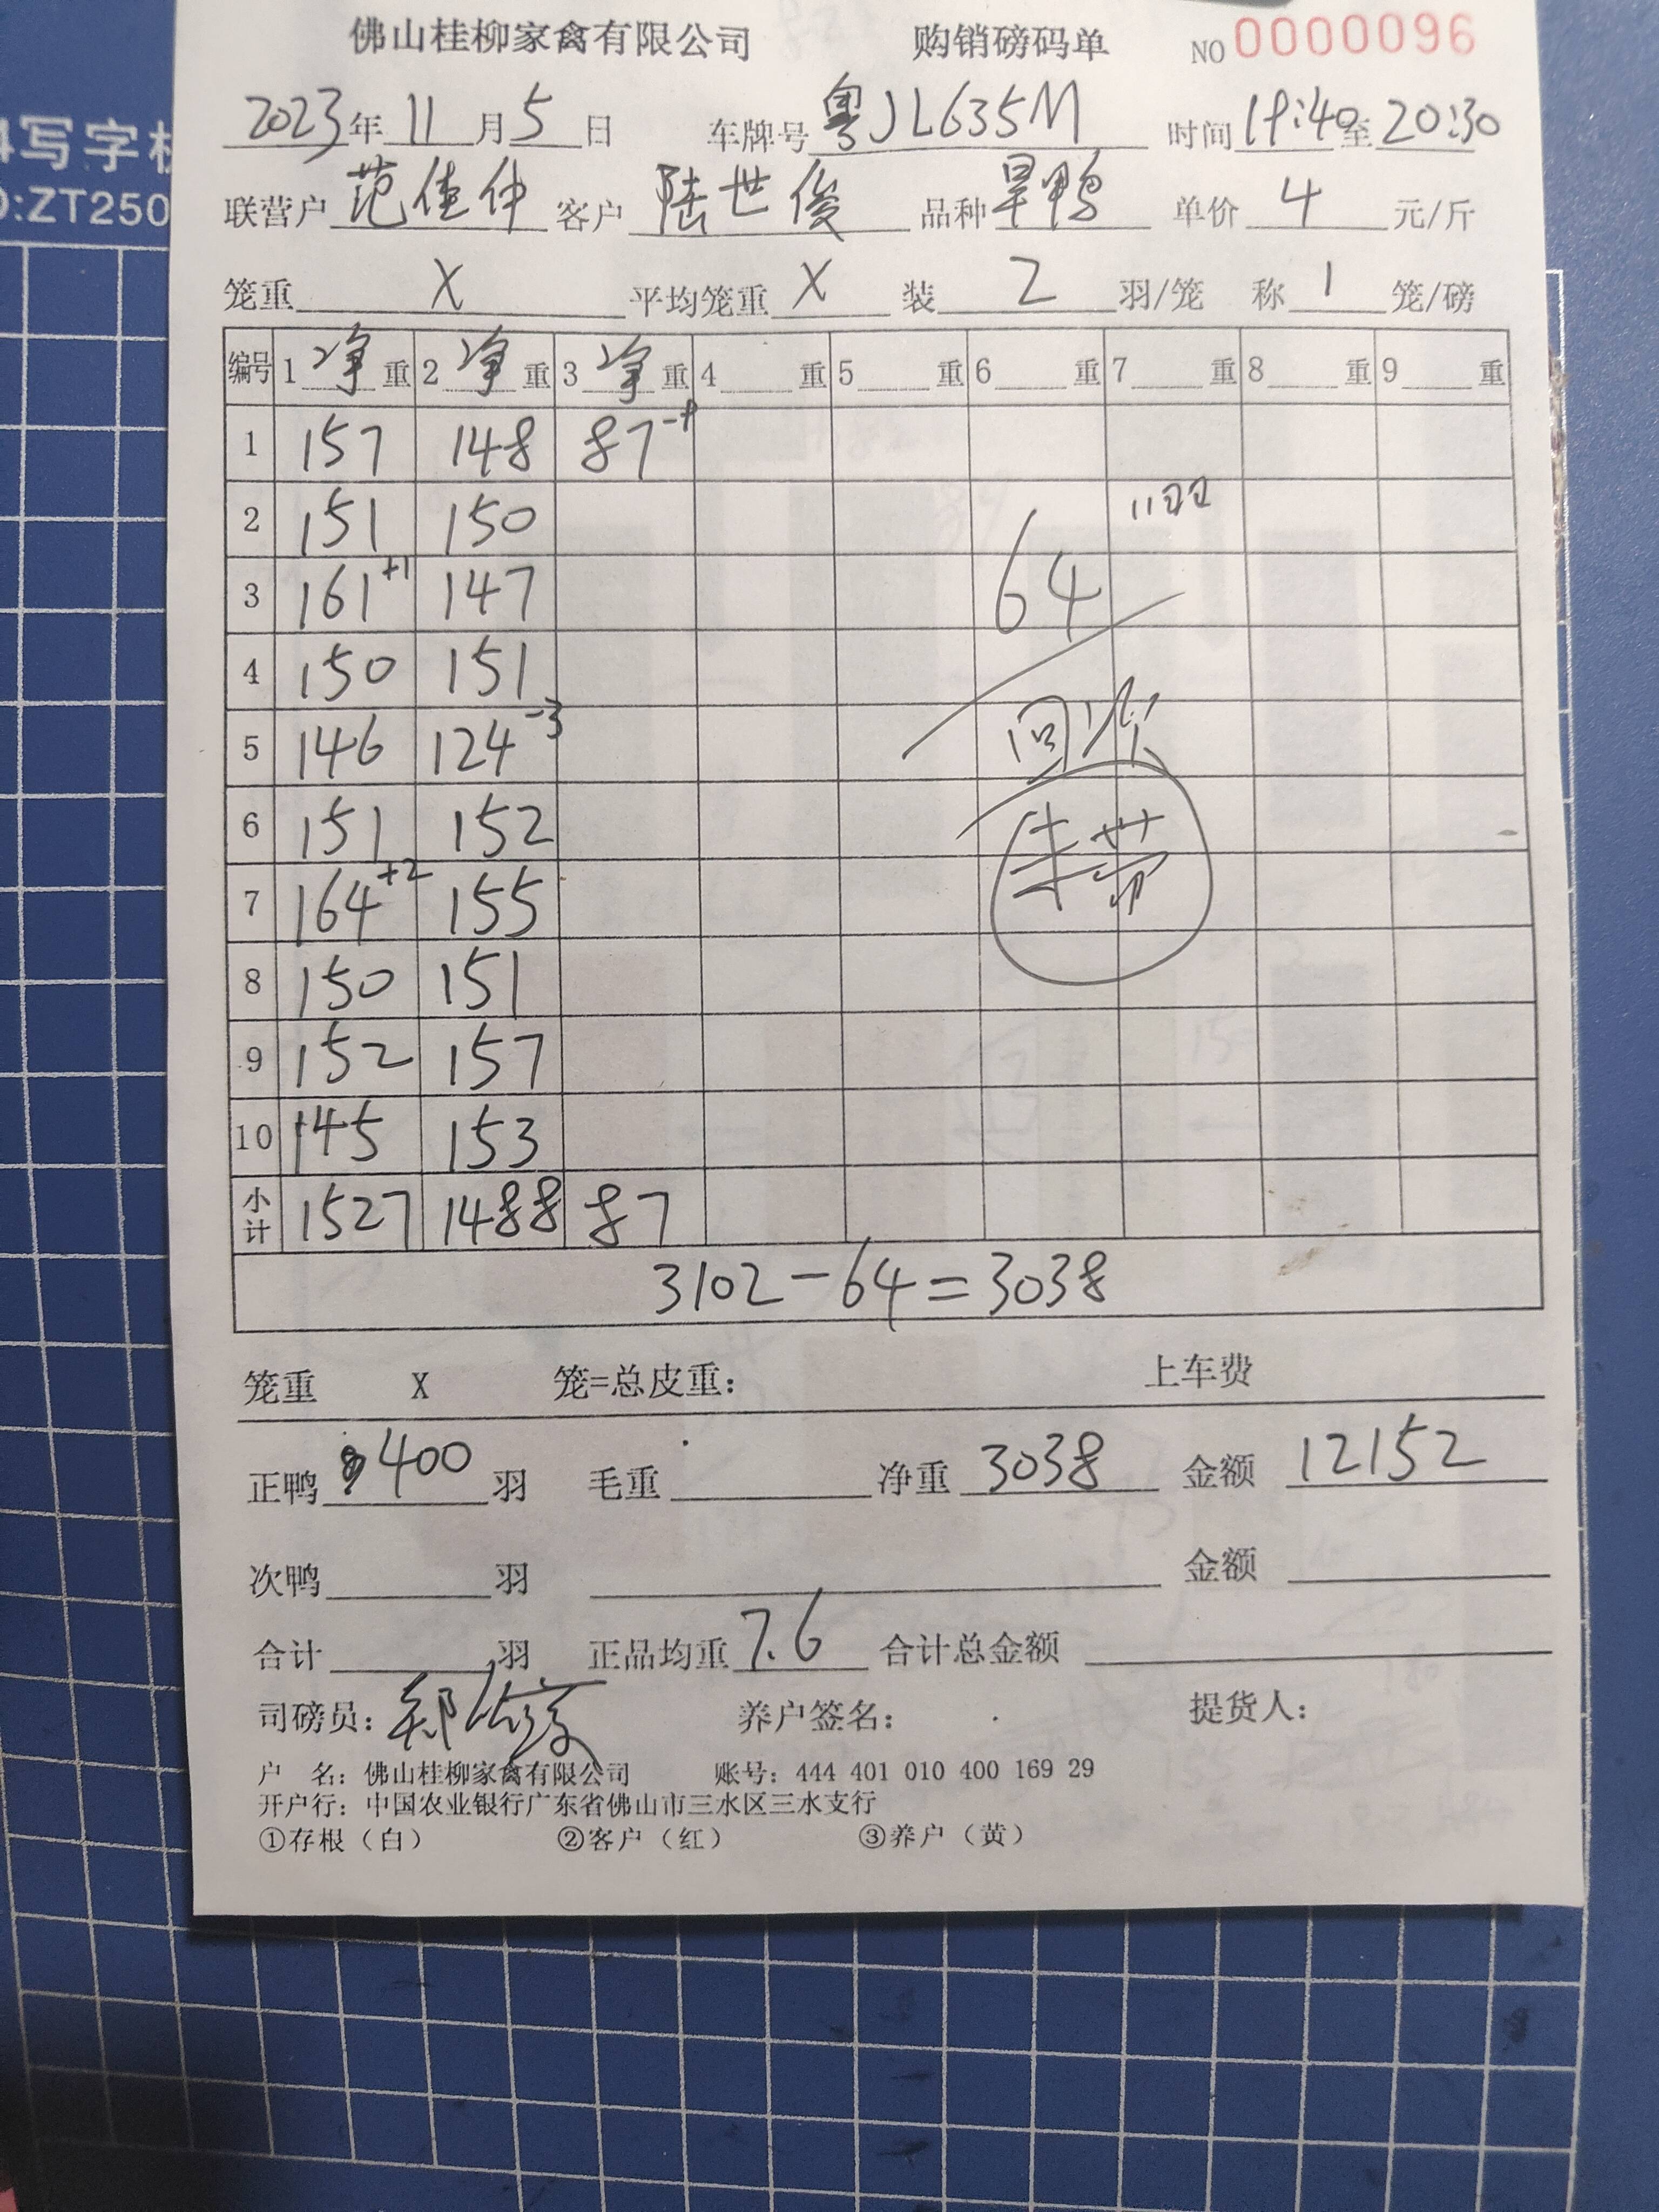 佛山桂柳家禽有限公司 购销磅码单 NO 0000096
2023年11月5日 车牌号 粤JL635M 时间 19:40至20:30
4写字
D:ZT250
联营户 范佳仲 客户 陆世俊 品种 旱鸭 单价 4 元/斤
笼重 X 平均笼重 X 装 2 羽/笼 称 1 笼/磅
编号 1净重 2净重 3净重 4重 5重 6重 7重 8重 9重
1 157 148 87
2 151 150
3 161+1 147 64
4 150 151
5 146 124-3
6 151 152
7 164+2 155
8 150 151
9 152 157
10 145 153
小计 1527 1488 87
3102-64=3038
笼重 X 笼=总皮重: 上车费
正鸭 400 羽 毛重 净重 3038 金额 12152
次鸭 羽 金额
合计 羽 正品均重 7.6 合计总金额
司磅员: 郑 养户签名: 提货人:
户 名: 佛山桂柳家禽有限公司 账号: 444 401 010 400 169 29
开户行: 中国农业银行广东省佛山市三水区三水支行
①存根(白) ②客户(红) ③养户(黄)